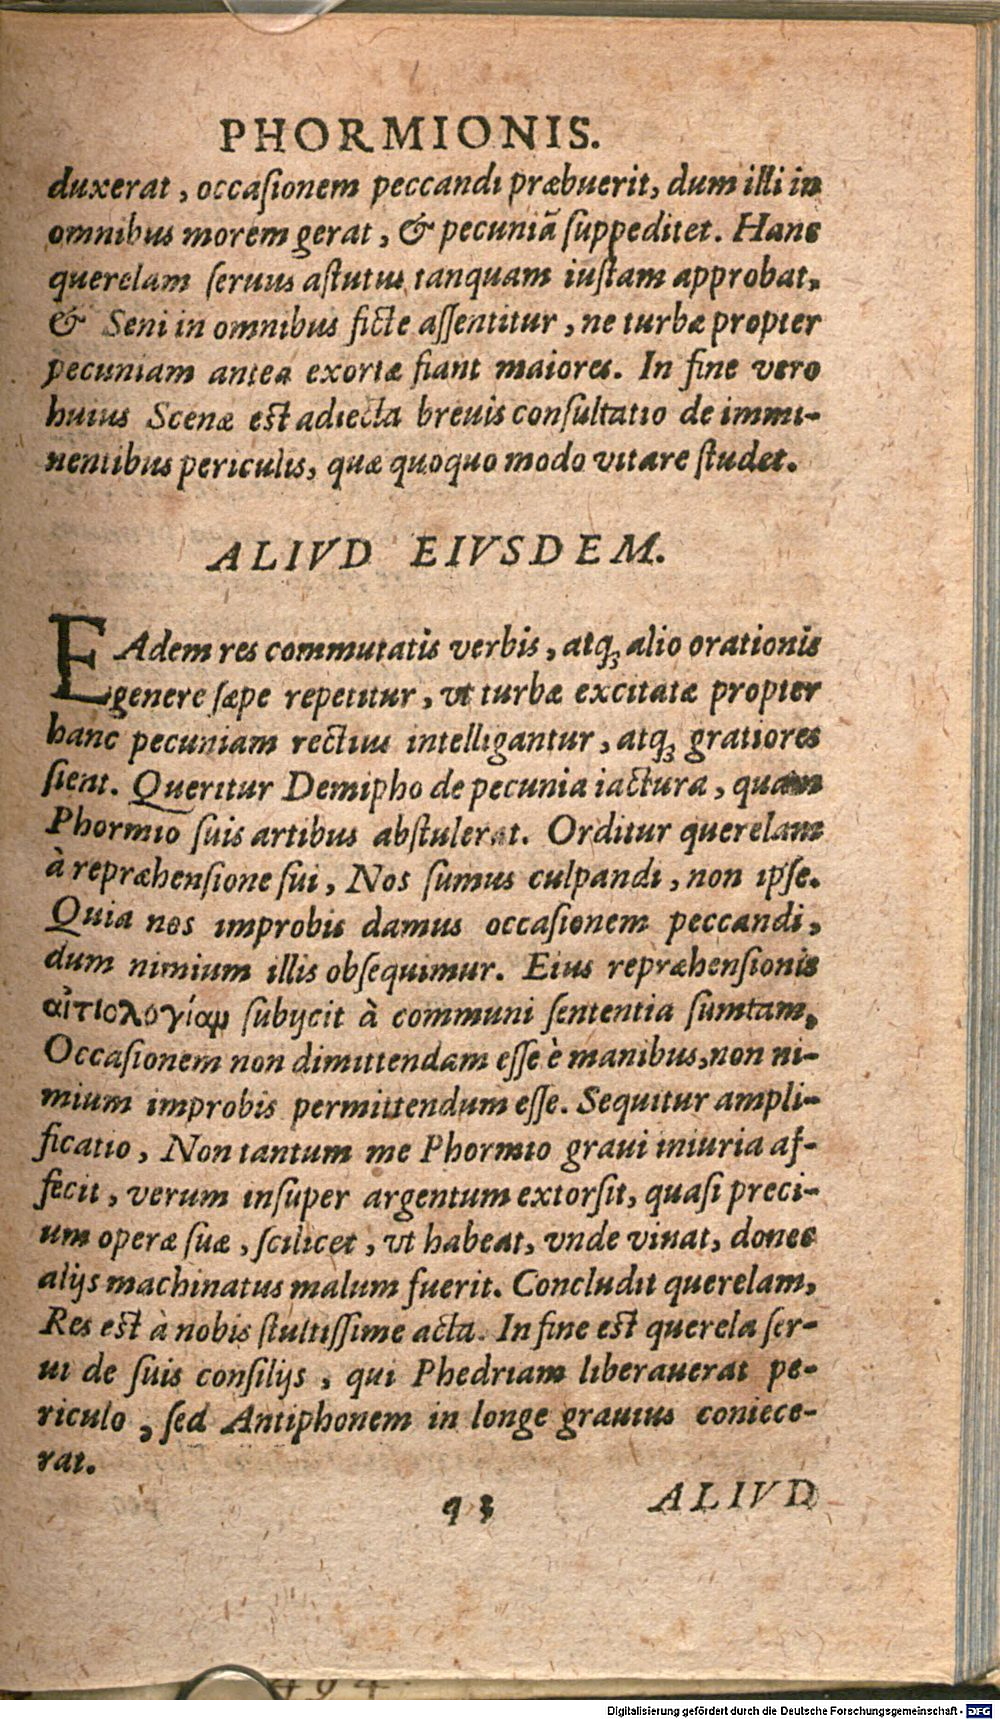 PHORMIONIS.
duxerat, occaſionem peccandi præbuerit, dum illi in
omnibus morem gerat, & pecuniã ſuppeditet. Hanc
querelam ſeruus aſtutus tanquam iuſtam approbat,
& Seni in omnibus ficte aſſentitur, ne turbæ propter
pecuniam antea exortæ fiant maiores. In fine vero
huius Scenæ est adiecta breuis conſultatio de immi-
nentibus periculis, quæ quoquo modo vitare ſtudet.
ALIVD EIVSDEM.
EAdem res commutatis verbis, atq; alio orationis
genere ſæpe repetitur, vt turbæ excitatæ propter
hanc pecuniam rectius intelligantur, atq; gratiores
ſient. Queritur Demipho de pecunia iactura, quam
Phormio ſuis artibus abſtulerat. Orditur querelam
à repræhenſione ſui, Nos ſumus culpandi, non ipſe.
Quia nos improbis damus occaſionem peccandi,
dum nimium illis obſequimur. Eius repræhenſionis
αἰτιολογίαμ ſubijcit à communi ſententia ſumtam,
Occaſionem non dimittendam eſſe è manibus, non ni-
mium improbis permittendum eſſe. Sequitur ampli-
ficatio, Non tantum me Phormio graui iniuria af-
fecit, verum inſuper argentum extorſit, quaſi preci-
um operæ ſuæ, ſcilicet, vt habeat, vnde viuat, donec
alijs machinatus malum fuerit. Concludit querelam,
Res est à nobis ſtultiſſime acta. In fine est querela ſer-
ui de ſuis conſilijs, qui Phedriam liberauerat pe-
riculo, ſed Antiphonem in longe grauius coniece-
rat.
q 3 ALIVD
494
Digitalisierung gefördert durch die Deutsche Forschungsgemeinschaft - DFG